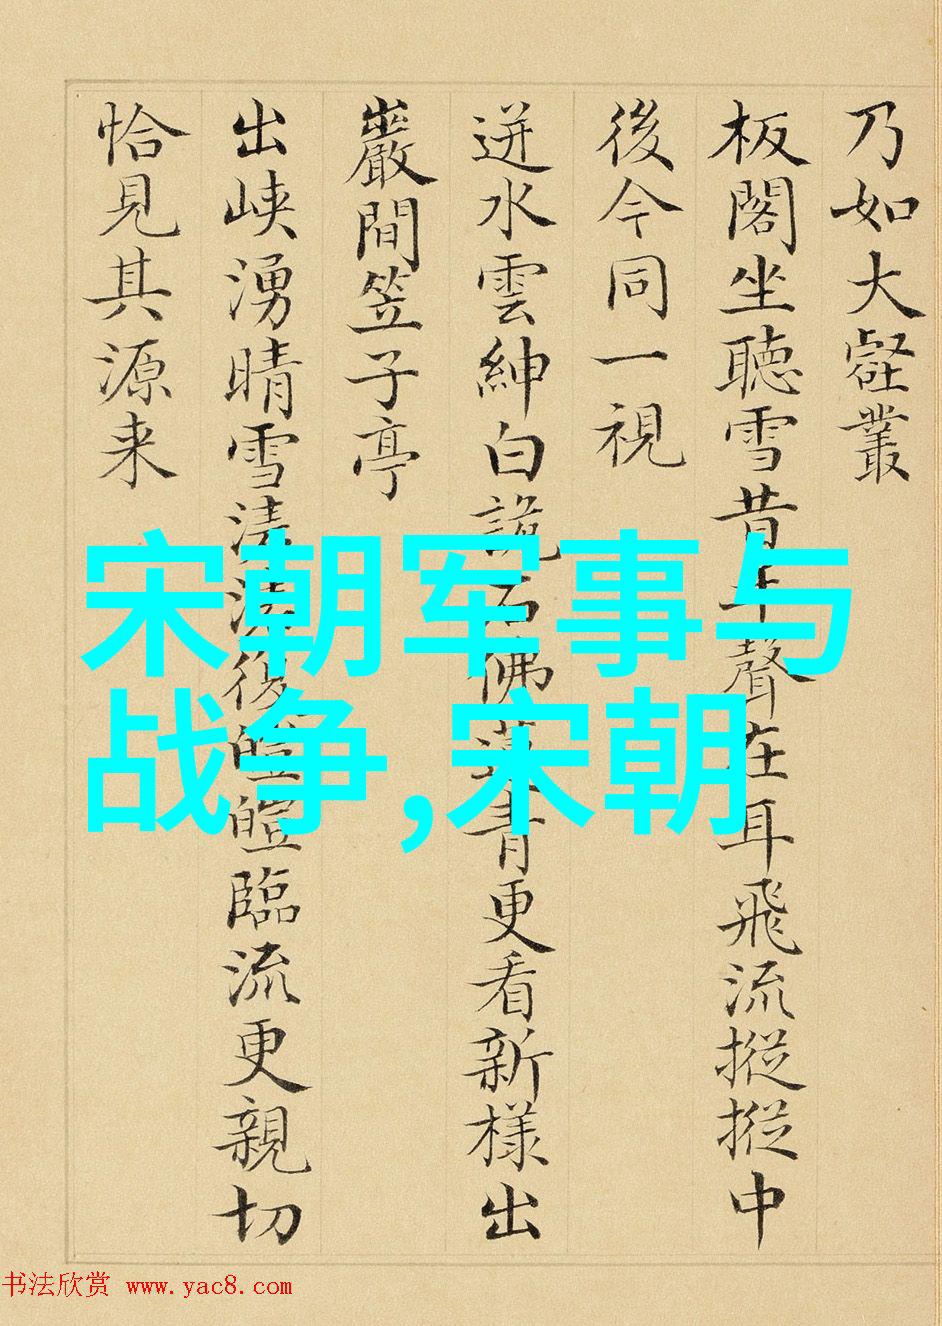 乃如大壑叢
板閣坐聽雪昔年聲在耳飛流摐摐中
後今同一視
迸水雲紳白詭石佛青更看新樣出
巖間笠子亭
出峽湧晴雪清皚臨流更親切
恰見其源来
宋朝军事与
战争,宋朝
书法欣赏 www.yac8.com